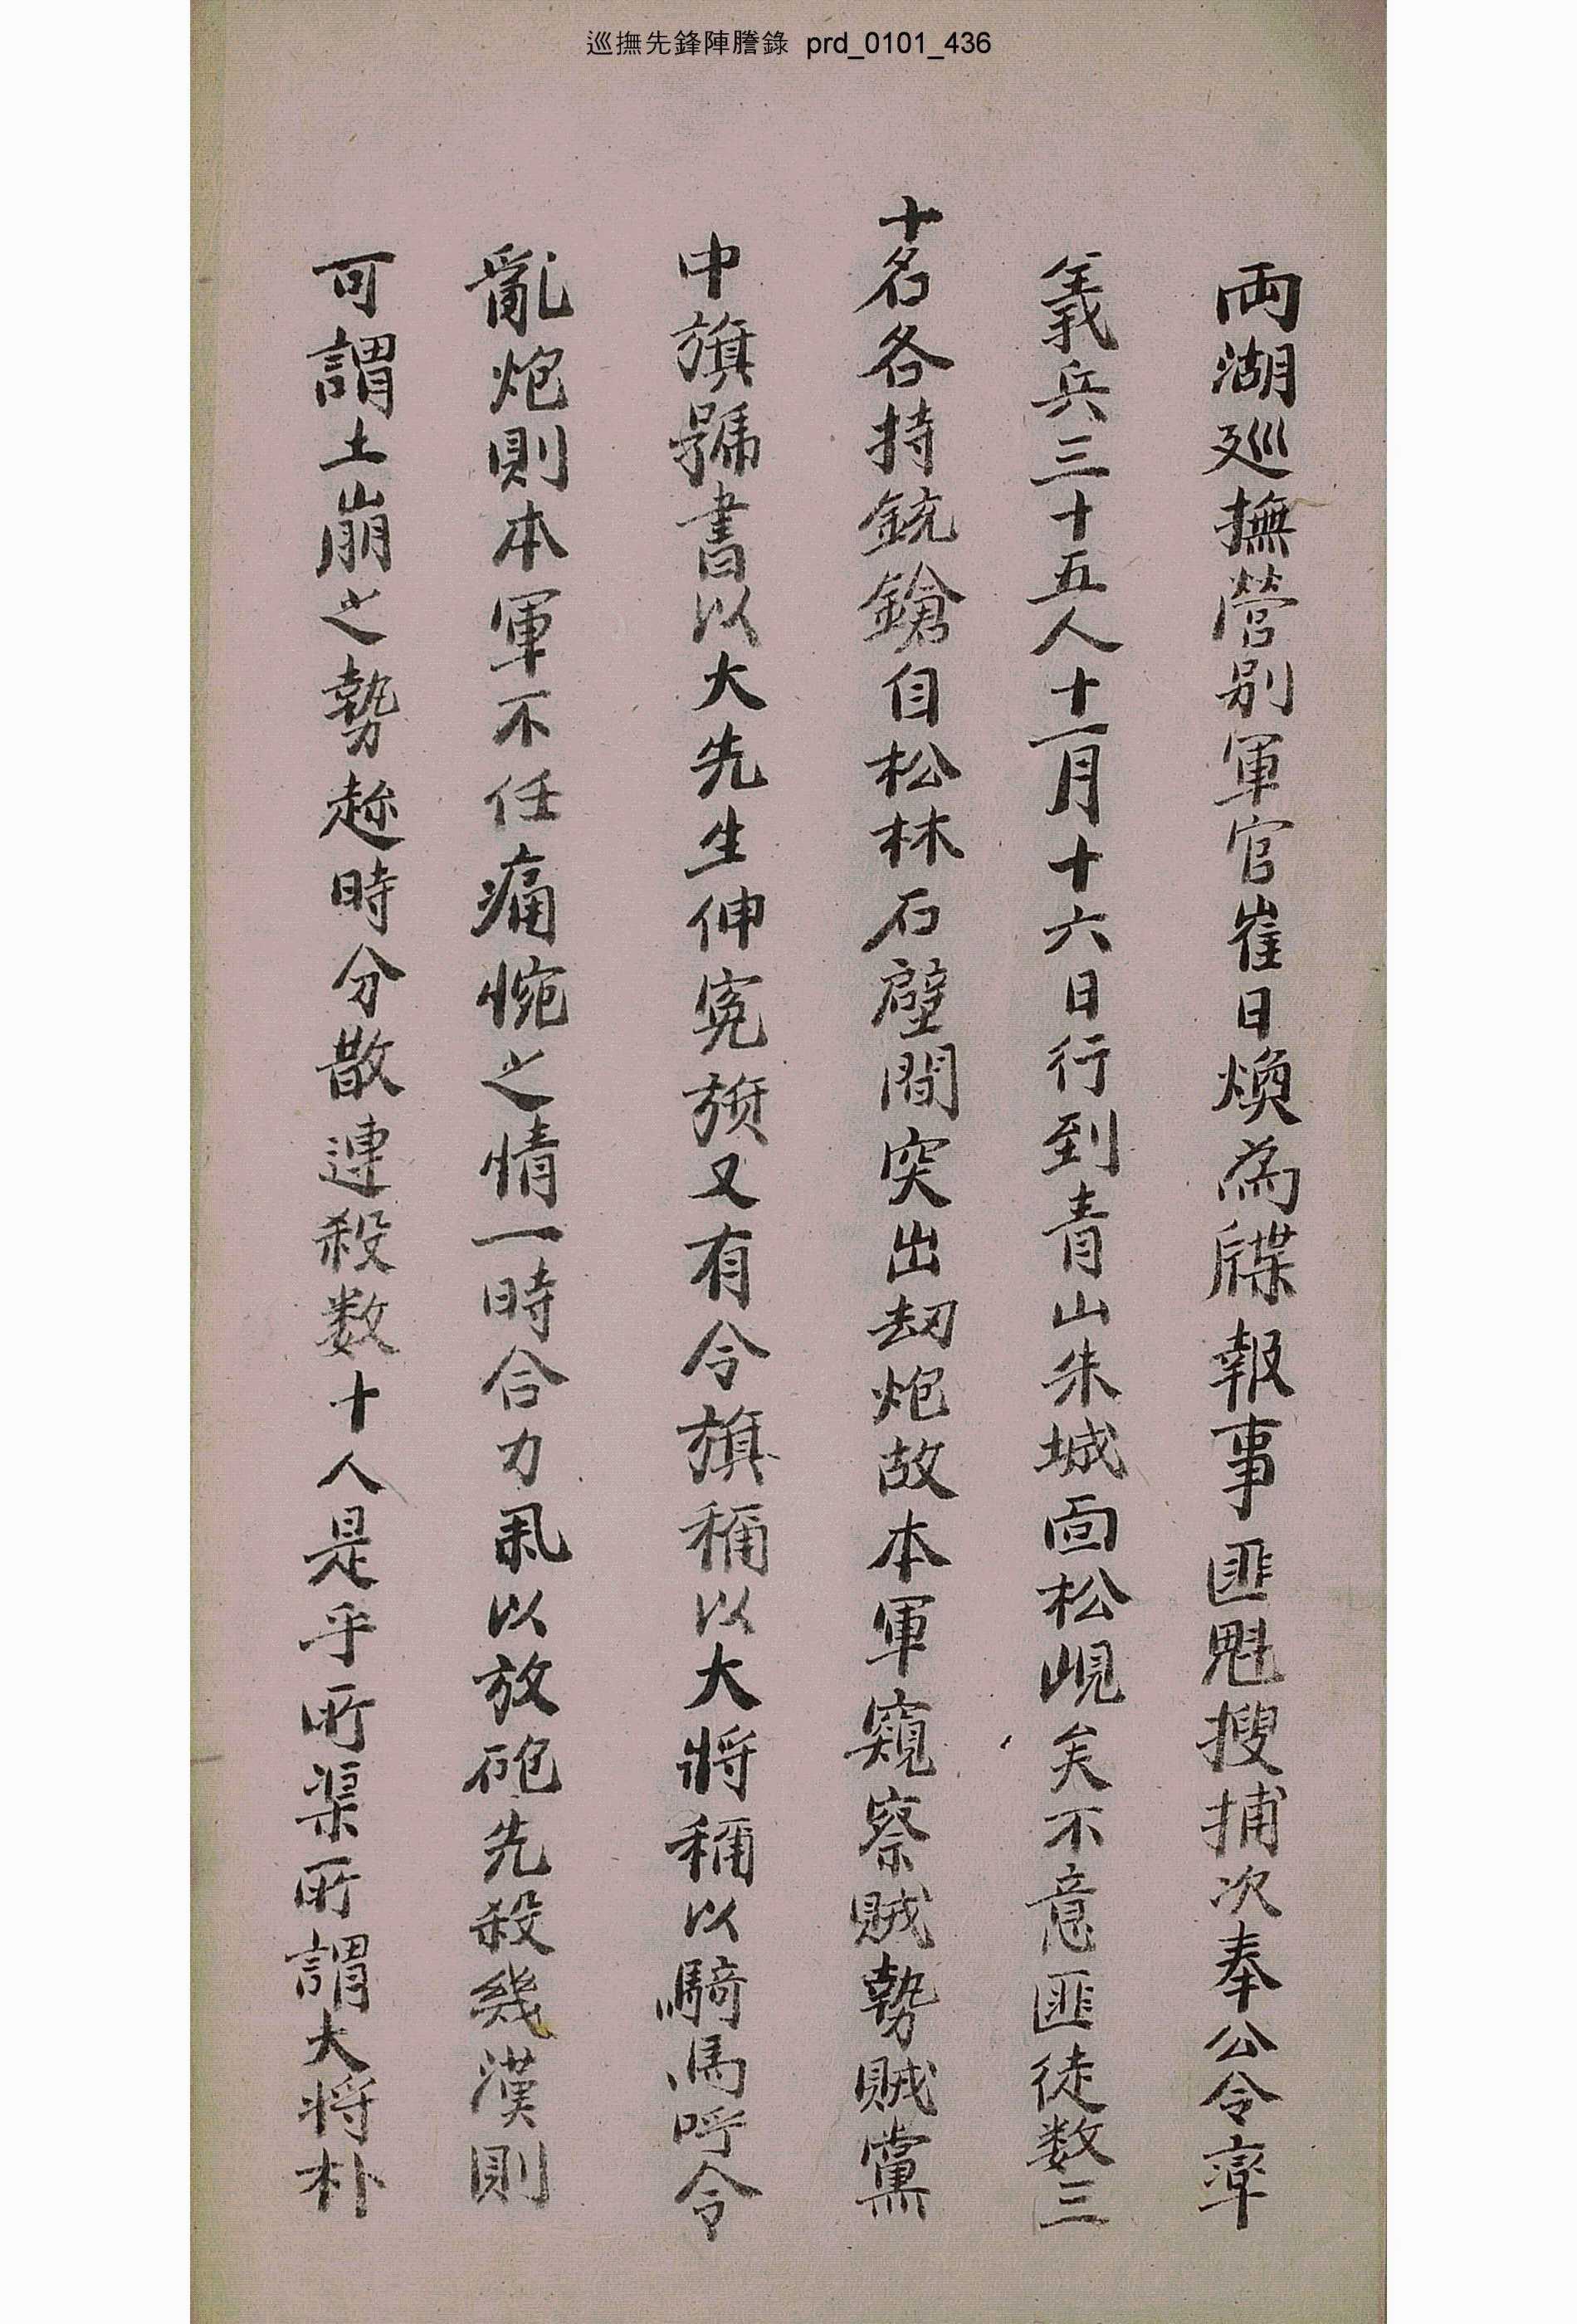 巡撫先鋒陣謄錄 prd_0101_436
両湖廵撫營別軍官崔日煥為牒報事匪魁搜捕次奉公令率
義兵三十五人十一月十六日行到青山朱城面松峴矣不意匪徒数三
十名各持銃鎗自松林石壁間突出刼炮故本軍窺察賊勢賊黨
中旗號書以大先生伸寃旗又有令旗称以大將称以騎馬呼令
亂炮則本軍不任痛惋之情一時合力氣以放砲先殺幾漢則
可謂土崩之勢趂時分散連殺数十人是乎所渠所謂大将朴